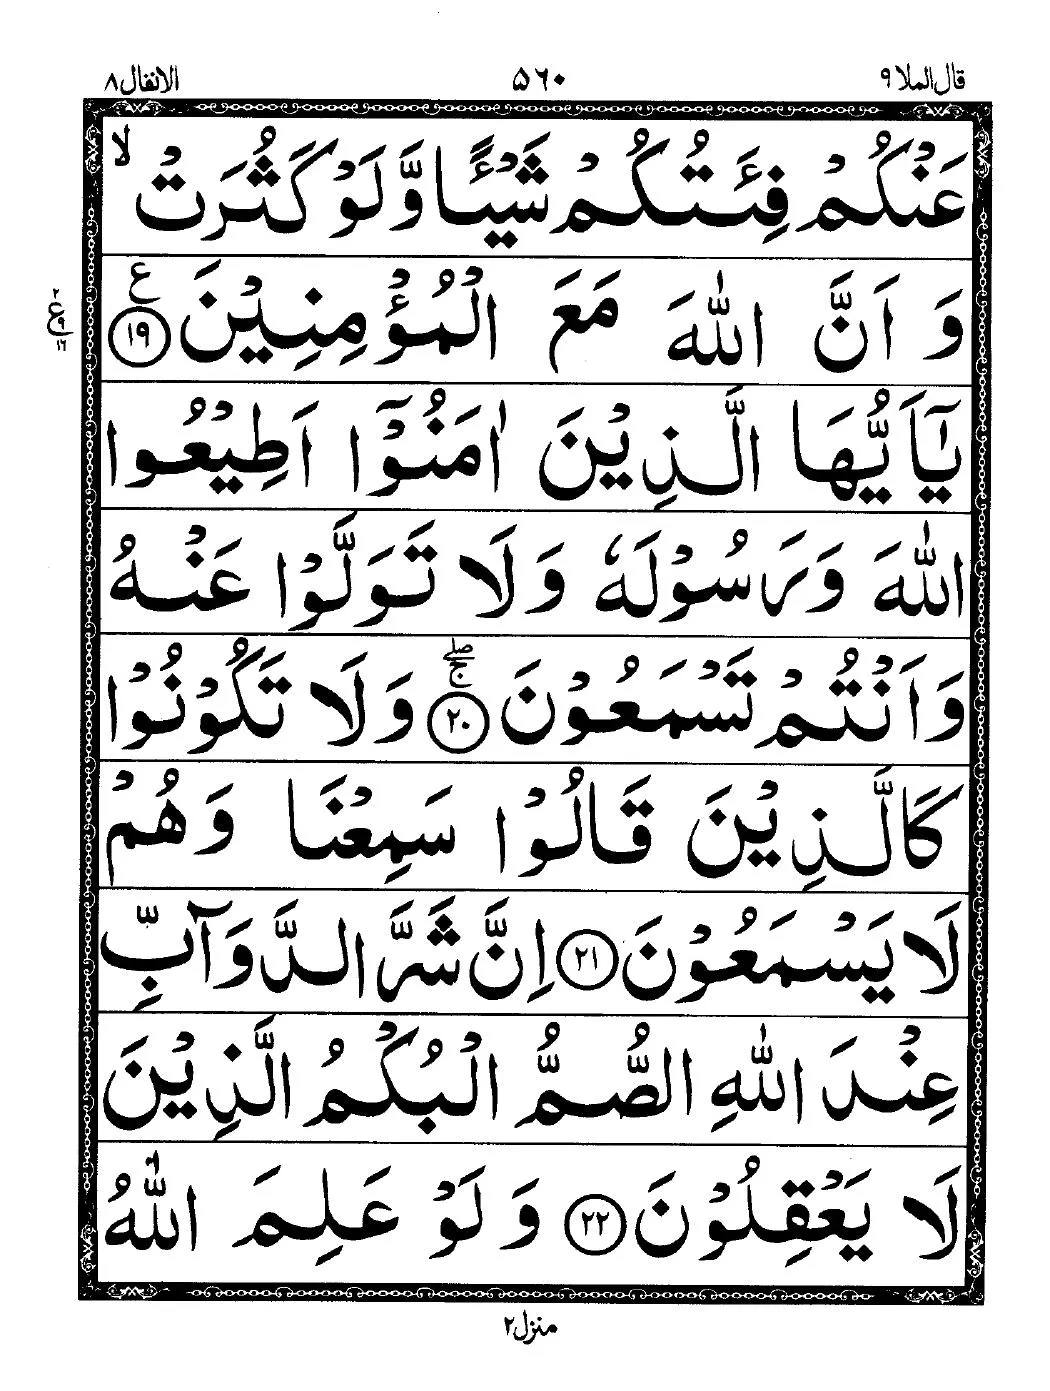 قال الملا ٩
٥٦٠
الانفال ٨
عَنْكُمْ فِئَتُكُمْ شَيْـًٔا وَّ لَوْ كَثُرَتْ ۙ
وَ اَنَّ اللّٰهَ مَعَ الْمُؤْمِنِيْنَ ࣖ ١٩
يٰۤاَيُّهَا الَّذِيْنَ اٰمَنُوْۤا اَطِيْعُوا
اللّٰهَ وَ رَسُوْلَهٗ وَ لَا تَوَلَّوْا عَنْهُ
وَ اَنْتُمْ تَسْمَعُوْنَ ۖۚ ٢٠ وَ لَا تَكُوْنُوْا
كَالَّذِيْنَ قَالُوْا سَمِعْنَا وَ هُمْ
لَا يَسْمَعُوْنَ ٢١ اِنَّ شَرَّ الدَّوَآبِّ
عِنْدَ اللّٰهِ الصُّمُّ الْبُكْمُ الَّذِيْنَ
لَا يَعْقِلُوْنَ ٢٢ وَ لَوْ عَلِمَ اللّٰهُ
٢
ع
٩
١٦
منزل ٢